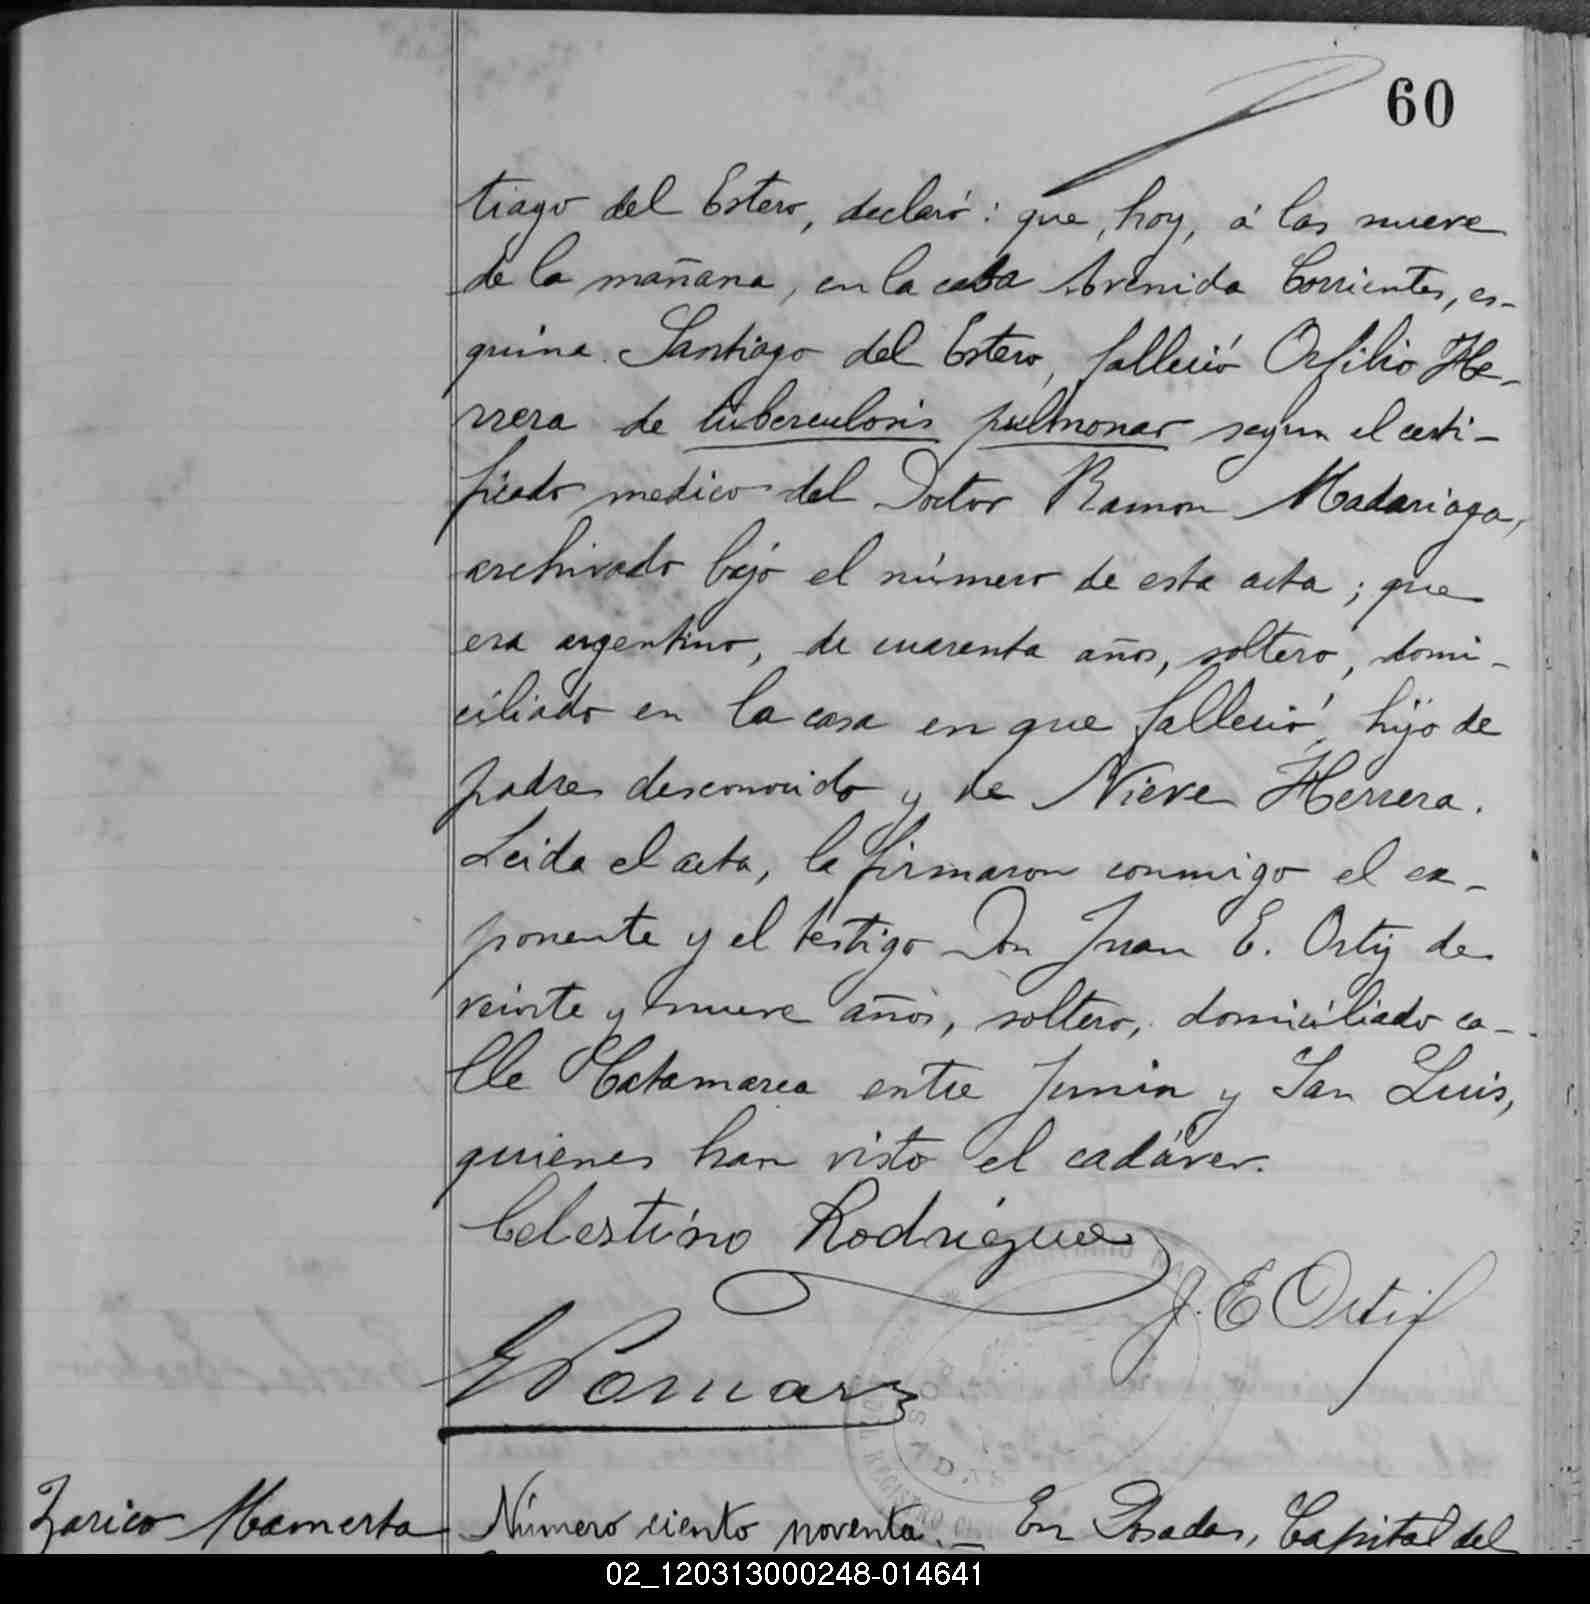 60
tiago del Estero, declaró: que, hoy, á las nueve
de la mañana, en la casa Avenida Corrientes, es-
quina Santiago del Estero, falleció Orfilio He-
rrera de tuberculosis pulmonar segun el certi-
ficado medico del Doctor Ramon Madariaga,
archivado bajo el número de esta acta; que
era argentino, de cuarenta años, soltero, domi-
ciliado en la casa en que falleció, hijo de
padre desconocido y de Nieve Herrera.
Leida el acta, la firmaron conmigo el ex-
ponente y el testigo Don Juan E. Ortiz de
veinte y nueve años, soltero, domiciliado ca-
lle Catamarca entre Junin y San Luis,
quienes han visto el cadáver.
Celestino Rodriguez
J. E Ortiz
Zarico Mamerta
Número ciento noventa.— En Posadas, Capital del
02_120313000248-014641